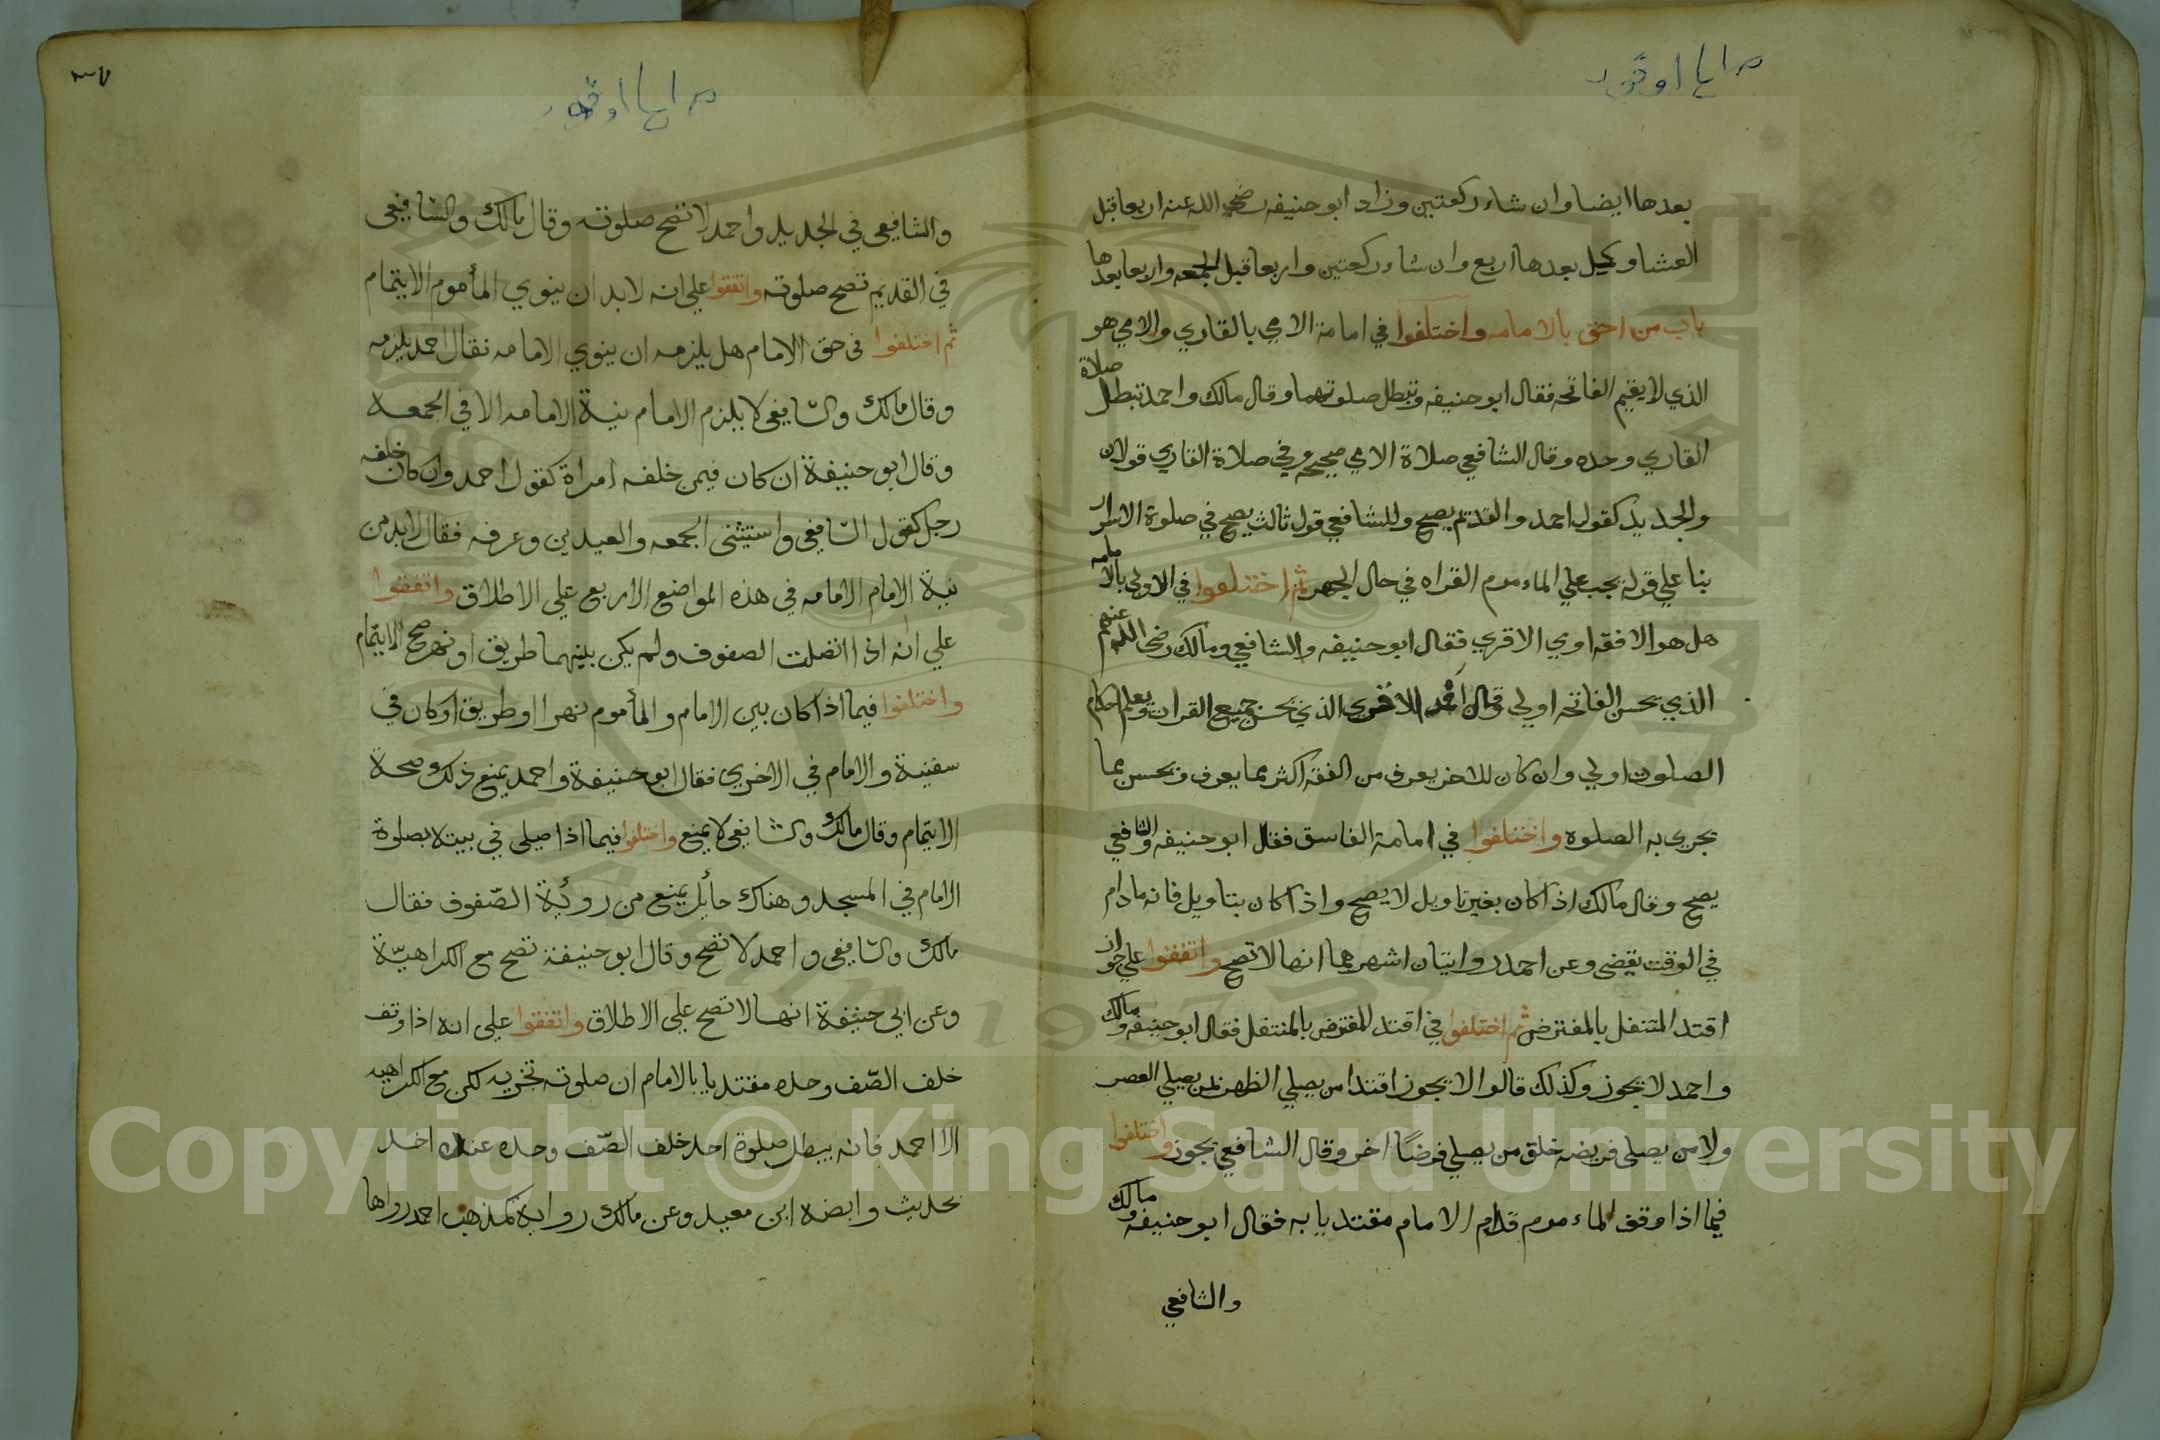 بعدها ايضا وان شاء ركعتين وزاد ابو حنيفه رضي الله عنه اربعا قبل
العشاء وكيل بعدها اربع وان شاء ركعتين واربعا قبل الجمعه واربعا بعدها
باب من احق بالامامه واختلفوا في امامة الامي بالقاري والامي هو
الذي لا يقيم الفاتحه فقال ابو حنيفه وتبطل صلوتهما وقال مالك واحمد تبطل صلاة
القاري وحده وقال الشافعي صلاة الامي صحيحه وفي صلاة القاري قولان
والجديد كقول احمد والقديم يصح وللشافعي قول ثالث يصح في صلوة الاسرار
بنا علي قوله يجب علي الماءموم القراه في حال الجهر ثم اختلفوا في الاولي بالامامه
هل هو الافقه اوي الاقري فقال ابو حنيفه والشافعي ومالك رضي اللهم عنهم
الذي يحسن الفاتحه اولي وقال احمد الاقري الذي يحسن جميع القران ويعلم احكام
الصلوت اولي وان كان للاخر يعرف من الفقه اكثر مما يعرف ويحسن بما
تجري به الصلوه واختلفوا في امامة الفاسق فقال ابو حنيفه والشافعي
يصح وقال مالك اذا كان بغير تاويل لا يصح واذا كان بتاويل فانه مادام
في الوقت تقضي وعن احمد روايتان اشهرهما انها لا تصح واتفقوا علي جواز
اقتد المتنفل بالمفترض ثم اختلفوا في اقتد المفترض بالمنتفل فقال ابو حنيفه ومالك
واحمد لا يجوز وكذلك قالوا لا يجوز اقتدا من يصلي الظهر بمن يصلي العصر
ولا من يصلي فريضه خلق من يصلي فرضًا اخر وقال الشافعي يجوز واختلفوا
فيما اذا وقف الماءموم قدام الامام مقتديا به فقال ابو حنيفه ومالك
والشافعي
والشافعي في الجديد واحمد لا تصح صلوته وقال مالك والشافعي
في القديم تصح صلوته واتفقوا علي انه لابد ان ينوي المأموم الايتمام
ثم اختلفوا في حق الامام هل يلزمه ان ينوي الامامه فقال احمد يلزمه
وقال مالك والشافعي لا يلزم الامام نية الامامه الا في الجمعة
وقال ابو حنيفة ان كان فيمن خلفه امراة كقول احمد وان كان خلفه
رجل كقول الشافعي واستثنى الجمعه والعيدين وعرفه فقال لابد من
نية الامام الامامه في هذه المواضع الاربع علي الاطلاق واتفقوا
علي انه اذا اتصلت الصفوف ولم يكن بينهما طريق او نهر صح الايتمام
واختلفوا فيما اذا كان بين الامام والمأموم نهرا او طريق او كان في
سفينة والامام في الاخري فقال ابو حنيفة واحمد يمنع ذلك وصحة
الايتمام وقال مالك والشافعي لا يمنع واختلفوا فيما اذا صلى في بيته بصلوة
الامام في المسجد وهناك حائل يمنع من روئية الصّفوف فقال
مالك والشافعي واحمد لا تصح وقال ابو حنيفة تصح مع الكراهيّة
وعن ابي حنيفة انها لا تصح علي الاطلاق واتفقوا علي انه اذا وقف
خلف الصّف وحده مقتديا بالامام ان صلوته تجزيه لكن مع الكراهيه
الا احمد فانه يبطل صلوة احد خلف الصّف وحده عنده اخد
بحديث وابصه ابن معبد وعن مالك رواية كمذهب احمد رواها